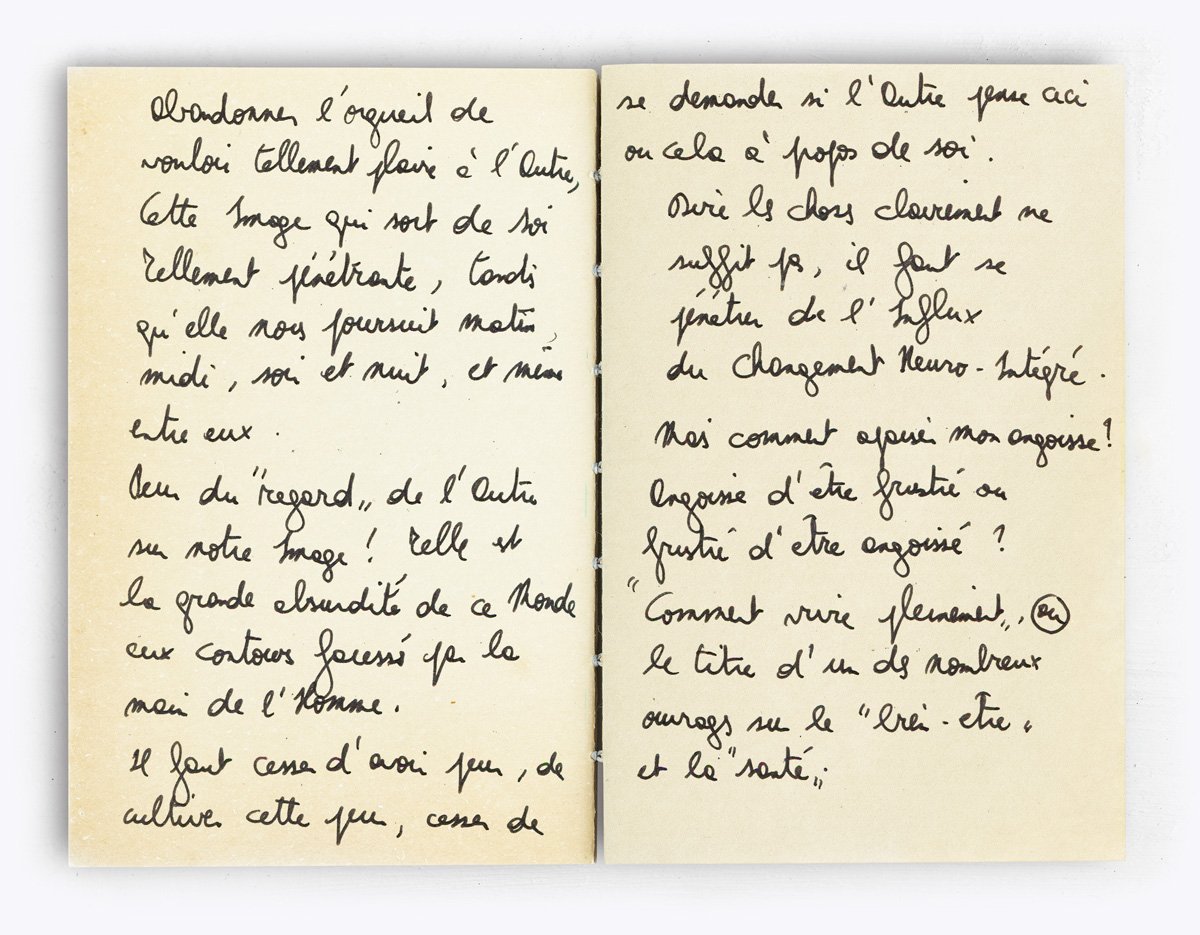 Abandonner l'orgueil de
vouloir tellement plaire à l'Autre,
Cette Image qui sort de soi
Tellement pénétrante, tandis
qu'elle nous poursuit matin,
midi, soir et nuit, et même
entre eux.
Peur du "regard" de l'Autre
sur notre Image ! Telle est
la grande absurdité de ce Monde
aux contours faressé par la
main de l'Homme.
Il faut cesser d'avoir peur, de
cultiver cette peur, cesser de
se demander si l'Autre pense ceci
ou cela à propos de soi.
Dire les choses clairement ne
suffit pas, il faut se
pénétrer de l'Influx
du Changement Neuro-Intégré.
Mais comment apaiser mon angoisse !
Angoisse d'être frustré ou
frustré d'être angoissé ?
"Comment vivre pleinement", ou
le titre d'un des nombreux
ouvrages sur le "bien-être"
et la "santé".